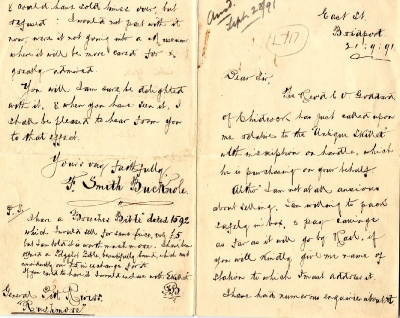 East St.
Bridport
21.9.91
Ansd.
Sept 28/91
Dear Sir,
The Revd. E V Goddard
of Chideock has just called upon
me relative to the Antique Skillet
with inscription on handle, which
he is purchasing on your behalf.
Altho' I am not at all anxious
about selling, I am willing to pack
safely in box, & pay carriage
as far as it will go by Rail, if
you will kindly give me name of
Station to which I must address it.
I have had numerous enquiries about it
& could have sold
over, but
refused: I would not part with it
now, were it not going into a Museum
where it will be more cared for &
greatly admired.
You will I am sure be delighted
with it, & when you have seen it, I
shall be pleased to hear from you
to that effect.
Yours very faithfully
F. Smith
P.S.
I have a Breeches Bible dated 1592
which I would sell for
£5
but I am told it is worth much more. I have
beautifully bound, which cost
in exchange for it
General Pitt Rivers
Rushmore